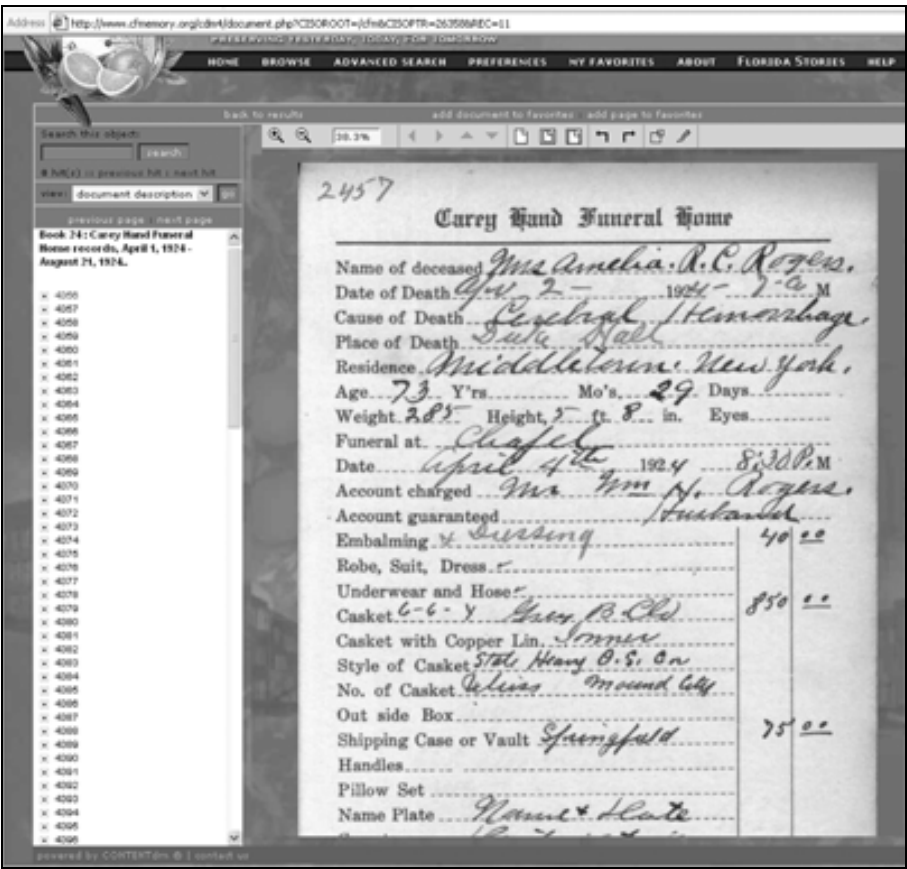 Address http://www.cfmemory.org/cdm4/document.php?CISOROOT=/cfm&CISOPTR=26358&REC=11
PRESERVING YESTERDAY, TODAY, FOR TOMORROW
HOME BROWSE ADVANCED SEARCH PREFERENCES MY FAVORITES ABOUT FLORIDA STORIES HELP
back to results add document to favorites : add page to favorites
Search this object:
search
0 hit(s) :: previous hit : next hit
38.3%
view: document description go
previous page : next page
Book 24: Carey Hand Funeral
Home records, April 1, 1924 -
August 21, 1924..
4066
4067
4068
4069
4060
4061
4062
4063
4064
4065
4066
4067
4068
4069
4070
4071
4072
4073
4074
4075
4076
4077
4078
4079
4080
4081
4082
4083
4084
4085
4086
4087
4088
4089
4090
4091
4092
4093
4094
4095
4096
2457
Carey Hand Funeral Home
Name of deceased Mrs Amelia. R. C. Rogers.
Date of Death Apr 2 - 1924 - 7-a M
Cause of Death Cerebral Hemorrhage.
Place of Death Duke Hall
Residence Middletown. New York.
Age 73 Y'rs Mo's 29 Days
Weight 285 Height, 5 ft. 8 in. Eyes
Funeral at Chapel
Date April 4th 1924 8:30 P.M
Account charged Mr Wm H. Rogers.
Account guaranteed Husband
Embalming & Dressing 40 00
Robe, Suit, Dress
Underwear and Hose
Casket 6-6-Y Grey B. Clo 850 00
Casket with Copper Lin. Inner
Style of Casket State Heavy O. S.
No. of Casket Mound City
Out side Box
Shipping Case or Vault Springfield 75 00
Handles
Pillow Set
Name Plate Name & Date
powered by CONTENTdm ® | contact us